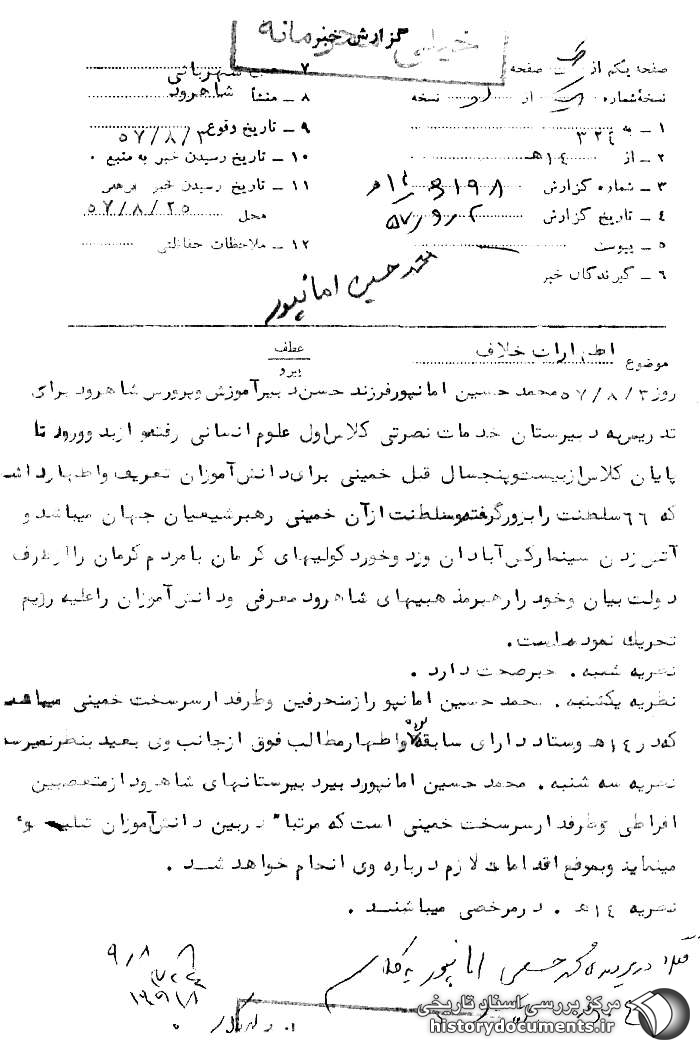 گزارش خبر
خیلی محرمانه
صفحه یکم از صفحه
نسخهٔ شماره از نسخه
۱ ـ به ۳۲۴
۲ ـ از ۱۴هـ
۳ ـ شماره گزارش
۴ ـ تاریخ گزارش
۵ ـ پیوست
۶ ـ گیرندگان خبر
۷ ـ شهربانی
۸ ـ منشأ شاهرود
۹ ـ تاریخ وقوع ۵۷/۸/۳
۱۰ ـ تاریخ رسیدن خبر به منبع .
۱۱ ـ تاریخ رسیدن خبر
محل ۵۷/۸/۲۵
۱۲ ـ ملاحظات حفاظتی
محمد حسین امانپور
موضوع اظهارات خلاف
عطف
پیرو
روز ۵۷/۸/۳ محمد حسین امانپور فرزند حسن دبیر آموزش و پرورش شاهرود برای
تدریس به دبیرستان خدمات نصرتی کلاس اول علوم انسانی رفته و از بدو ورود تا
پایان کلاس از بیست و پنجسال قبل خمینی برای دانش آموزان تعریف و اظهار داشته
که ۶۶ سلطنت را بزور گرفته و سلطنت از آن خمینی رهبر شیعیان جهان میباشد و
آتش زدن سینما رکس آبادان و زد و خورد کولیهای کرمان با مردم کرمان را از طرف
دولت بیان و خود را رهبر مذهبیهای شاهرود معرفی و دانش آموزان را علیه رژیم
تحریک نموده است.
نظریه شنبه . خبر صحت دارد .
نظریه یکشنبه . محمد حسین امانپور از منحرفین و طرفدار سرسخت خمینی میباشد
که در ۱۴هـ و ستاد دارای سابقه بوده و اظهار مطالب فوق از جانب وی بعید بنظر نمیرسد
نظریه سه شنبه . محمد حسین امانپور دبیر دبیرستانهای شاهرود از متعصبین
افراطی و طرفدار سرسخت خمینی است که مرتباً در بین دانش آموزان تبلیغ سوء
مینماید و بموقع اقدامات لازم درباره وی انجام خواهد شد .
نظریه ۱۴هـ . در مرخصی میباشند .
در پرونده محمد حسین امانپور
مرکز بررسی اسناد تاریخی
historydocuments.ir